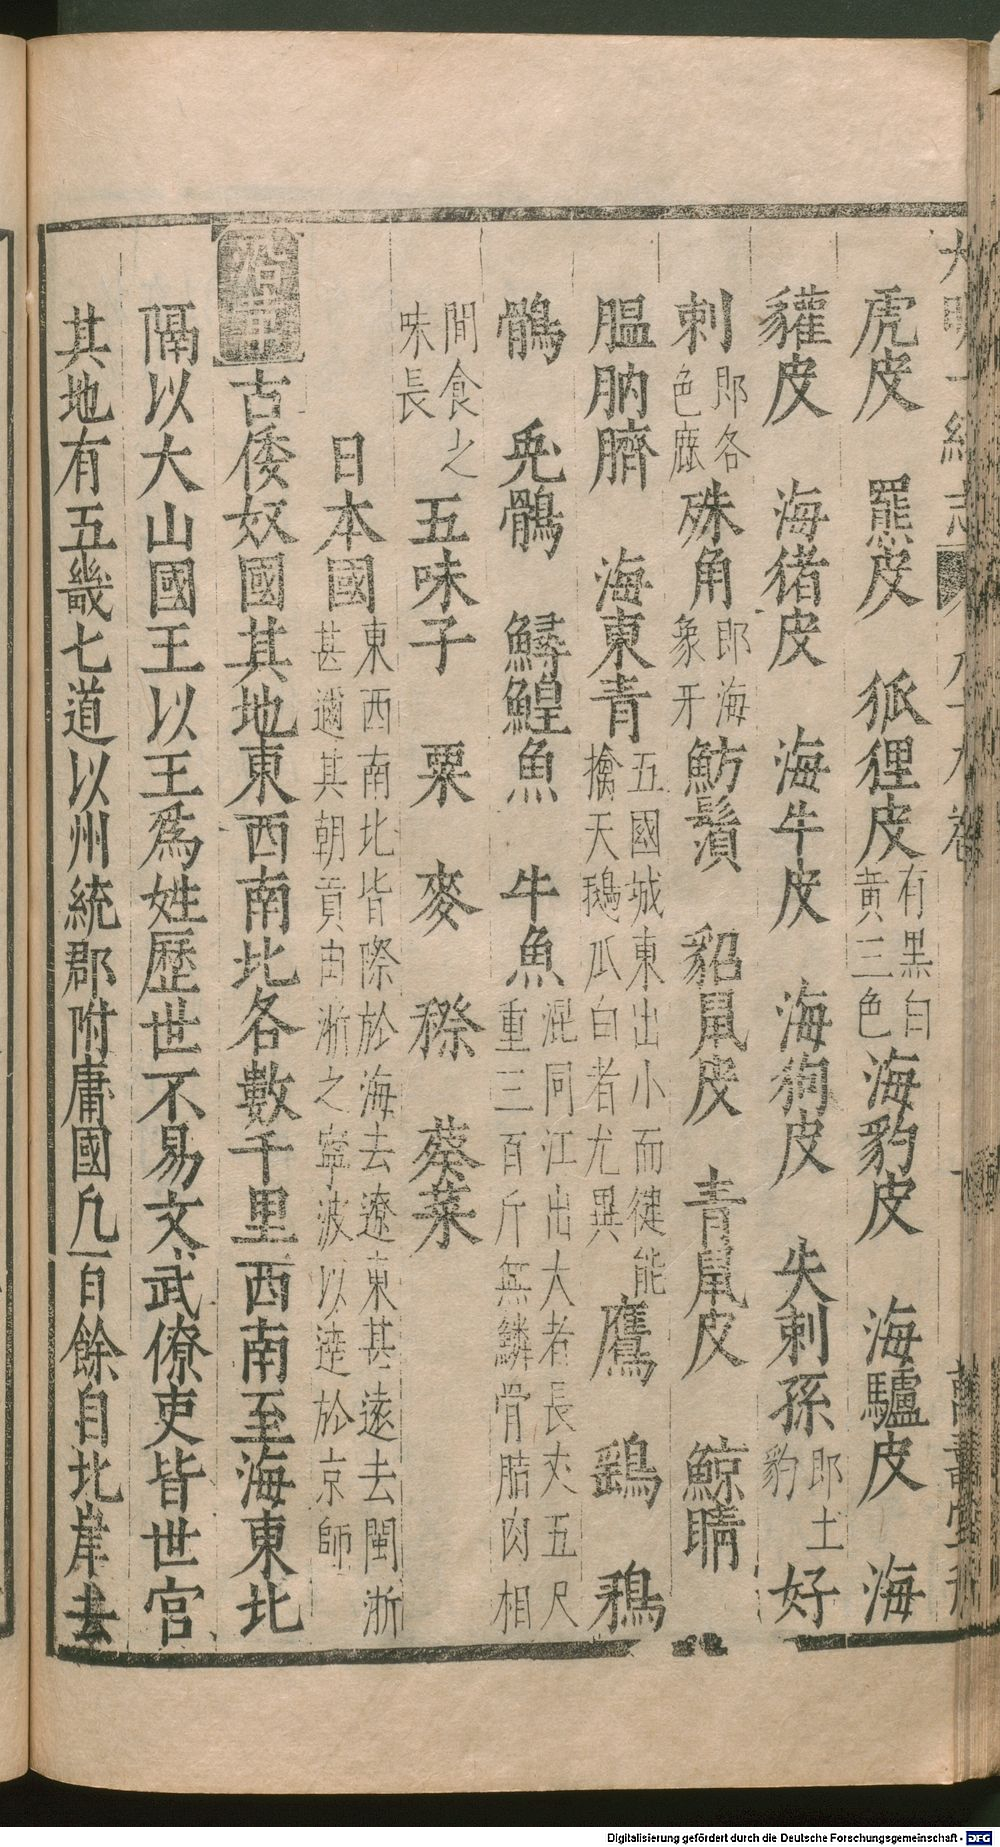 大明一統志 八十九卷 萬壽堂刊
虎皮 羆皮 狐狸皮 有黑白黄三色 海豹皮 海驢皮 海
貛皮 海猪皮 海牛皮 海狗皮 失剌孫 即土豹 好
刺 即各色鹿 殊角 即海象牙 魴鬚 貂鼠皮 青鼠皮 鯨睛
膃肭臍 海東青 五國城東出小而徤能擒天鵝爪白者尤異 鷹 鷂 鴉
鶻 兎鶻 鱘鰉魚 牛魚 混同江出大者長丈五尺重三百斤無鱗骨脂肉相
間食之味長 五味子 粟 麥 穄 葵菜
日本國 東西南北皆際於海去遼東甚遠去閩浙甚邇其朝貢由浙之寧波以達於京師
沿革 古倭奴國其地東西南北各數千里西南至海東北
隔以大山國王以王爲姓歷世不易文武僚吏皆世官
其地有五畿七道以州統郡附庸國凡百餘自北岸去
Digitalisierung gefördert durch die Deutsche Forschungsgemeinschaft - DFG